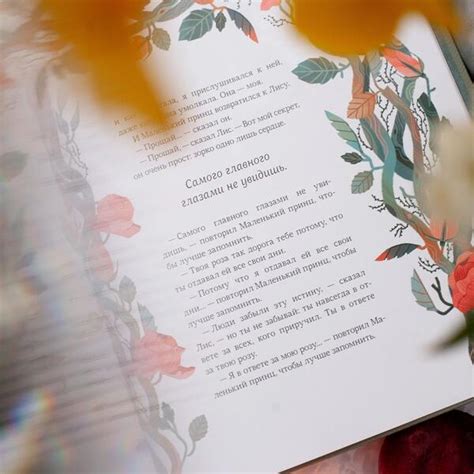 ала, я прислушивался к ней,
даже умолкала. Она — моя.
И Маленький принц возвратился к Лису.
— Прощай, — сказал он.
— Прощай, — сказал Лис. — Вот мой секрет,
он очень прост: зорко одно лишь сердце.
Самого главного
глазами не увидишь.
— Самого главного глазами не уви-
дишь, — повторил Маленький принц, что-
бы лучше запомнить.
— Твоя роза так дорога тебе потому, что
ты отдавал ей все свои дни.
— Потому что я отдавал ей все свои
дни... — повторил Маленький принц, чтобы
лучше запомнить.
— Люди забыли эту истину, — сказал
Лис, — но ты не забывай: ты навсегда в от-
вете за всех, кого приручил. Ты в ответе
за твою розу.
— Я в ответе за мою розу... — повторил Ма-
ленький принц, чтобы лучше запомнить.